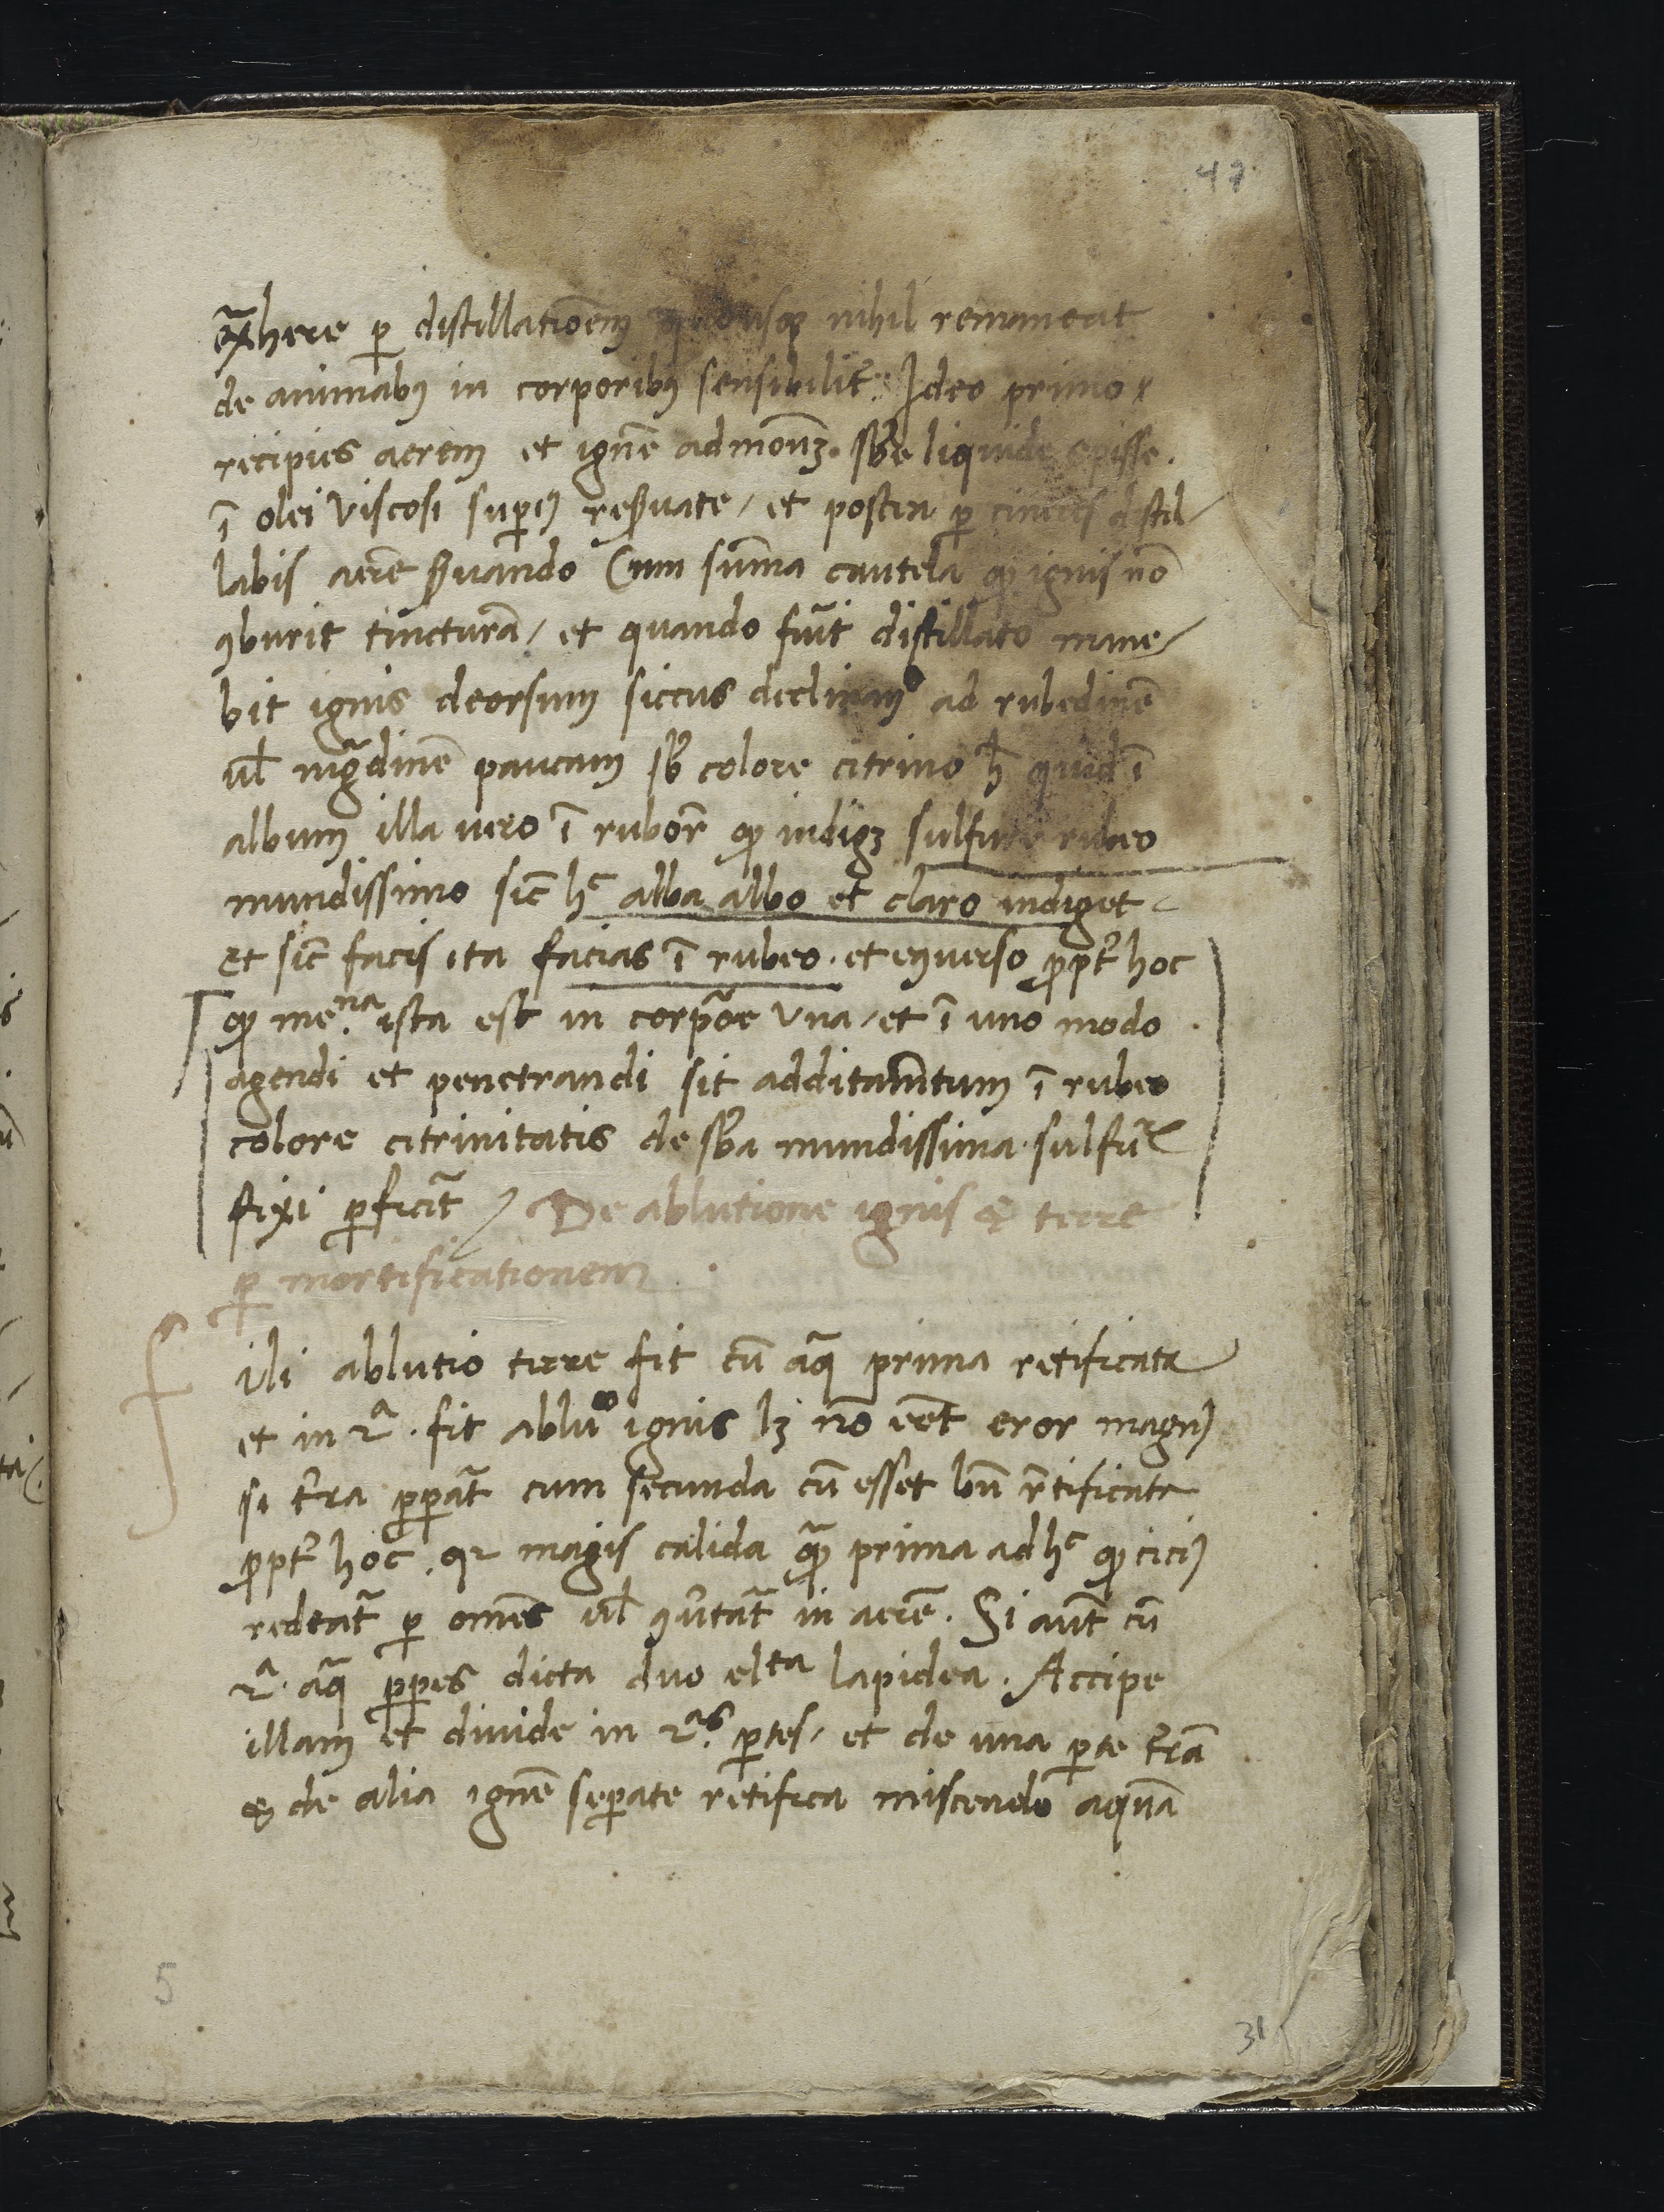 47
ex̄there ꝑ distillatiōem quousq nihil remaneat
de animabꝰ in corporibꝰ sensibilit̄. Ideo primo
recipies aerem et ignē ad modūꝫ. sb̄e liquide spisse.
ī olei viscosi supiꝰ reẜuate / et postea ꝑ cineres distil/
labis aerē ẜuando Cum sūma cautela qꝫ ignis nō
ꝯburit tincturā / et quando fuīt distillato mane/
bit ignis deorsum siccus declinamº ad rubedinē
ul̄ nigr̄dinē paucam sb̄ colore citrino h̄ quid ī
album illa vero ī ruborē qꝫ indigꝫ sulfure rubeo
mundissimo sic̄ hᶜ alba albo et claro indiget
Et sic̄ facis ita facias ī rubeo. et eꝯuerso ꝓpt̄ hoc
qꝫ meⁿᵃ. ista est in corpōre vna / et ī uno modo
agendi et penetrandi sit additam̄tum ī rubeo
colore citrinitatis de sb̄a mundissima sulfur̄
fixi ꝑficit̄ / De ablutione ignis & terre
ꝑ mortificationem
ili ablutio terre fit cū aq̄ prima retificata
et in 2ᵃ. fit abluº ignis lꝫ nō eēt eror magnꝰ
si t̄ra p̄parat̄ cum secunda cū esset bn̄ r̄tificata
ꝓpt̄ hoc. qꝛ magis calida qꝫ̄ prima ad hᶜ qꝫ ciciꝰ
redeat̄ ꝑ omēs ul̄ ꝯuertat̄ in aerē. Si aut̄ cū
2ᵃ. aq̄ p̄pes dicta duo elᵗᵃ lapidea. Accipe
illam et divide in 2ᵃˢ. ꝑtes / et de una ꝑte t̄rā
& de alia ignē seꝑate retifica miscendo aquā
5
31